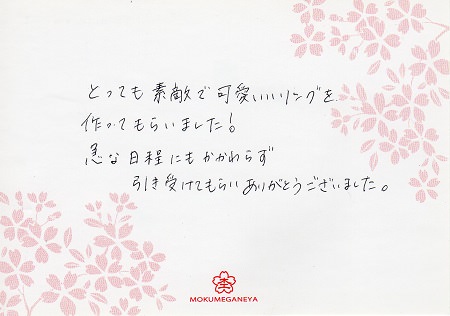 とっても素敵で可愛いいリングを
作ってもらいました!
急な日程にもかかわらず
引き受けてもらいありがとうございました。
MOKUMEGANEYA